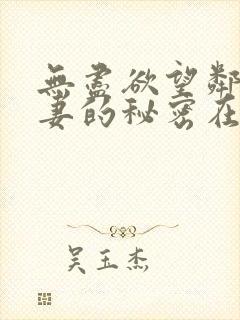 無盡欲望鄰
妻的秘密在
吴玉杰